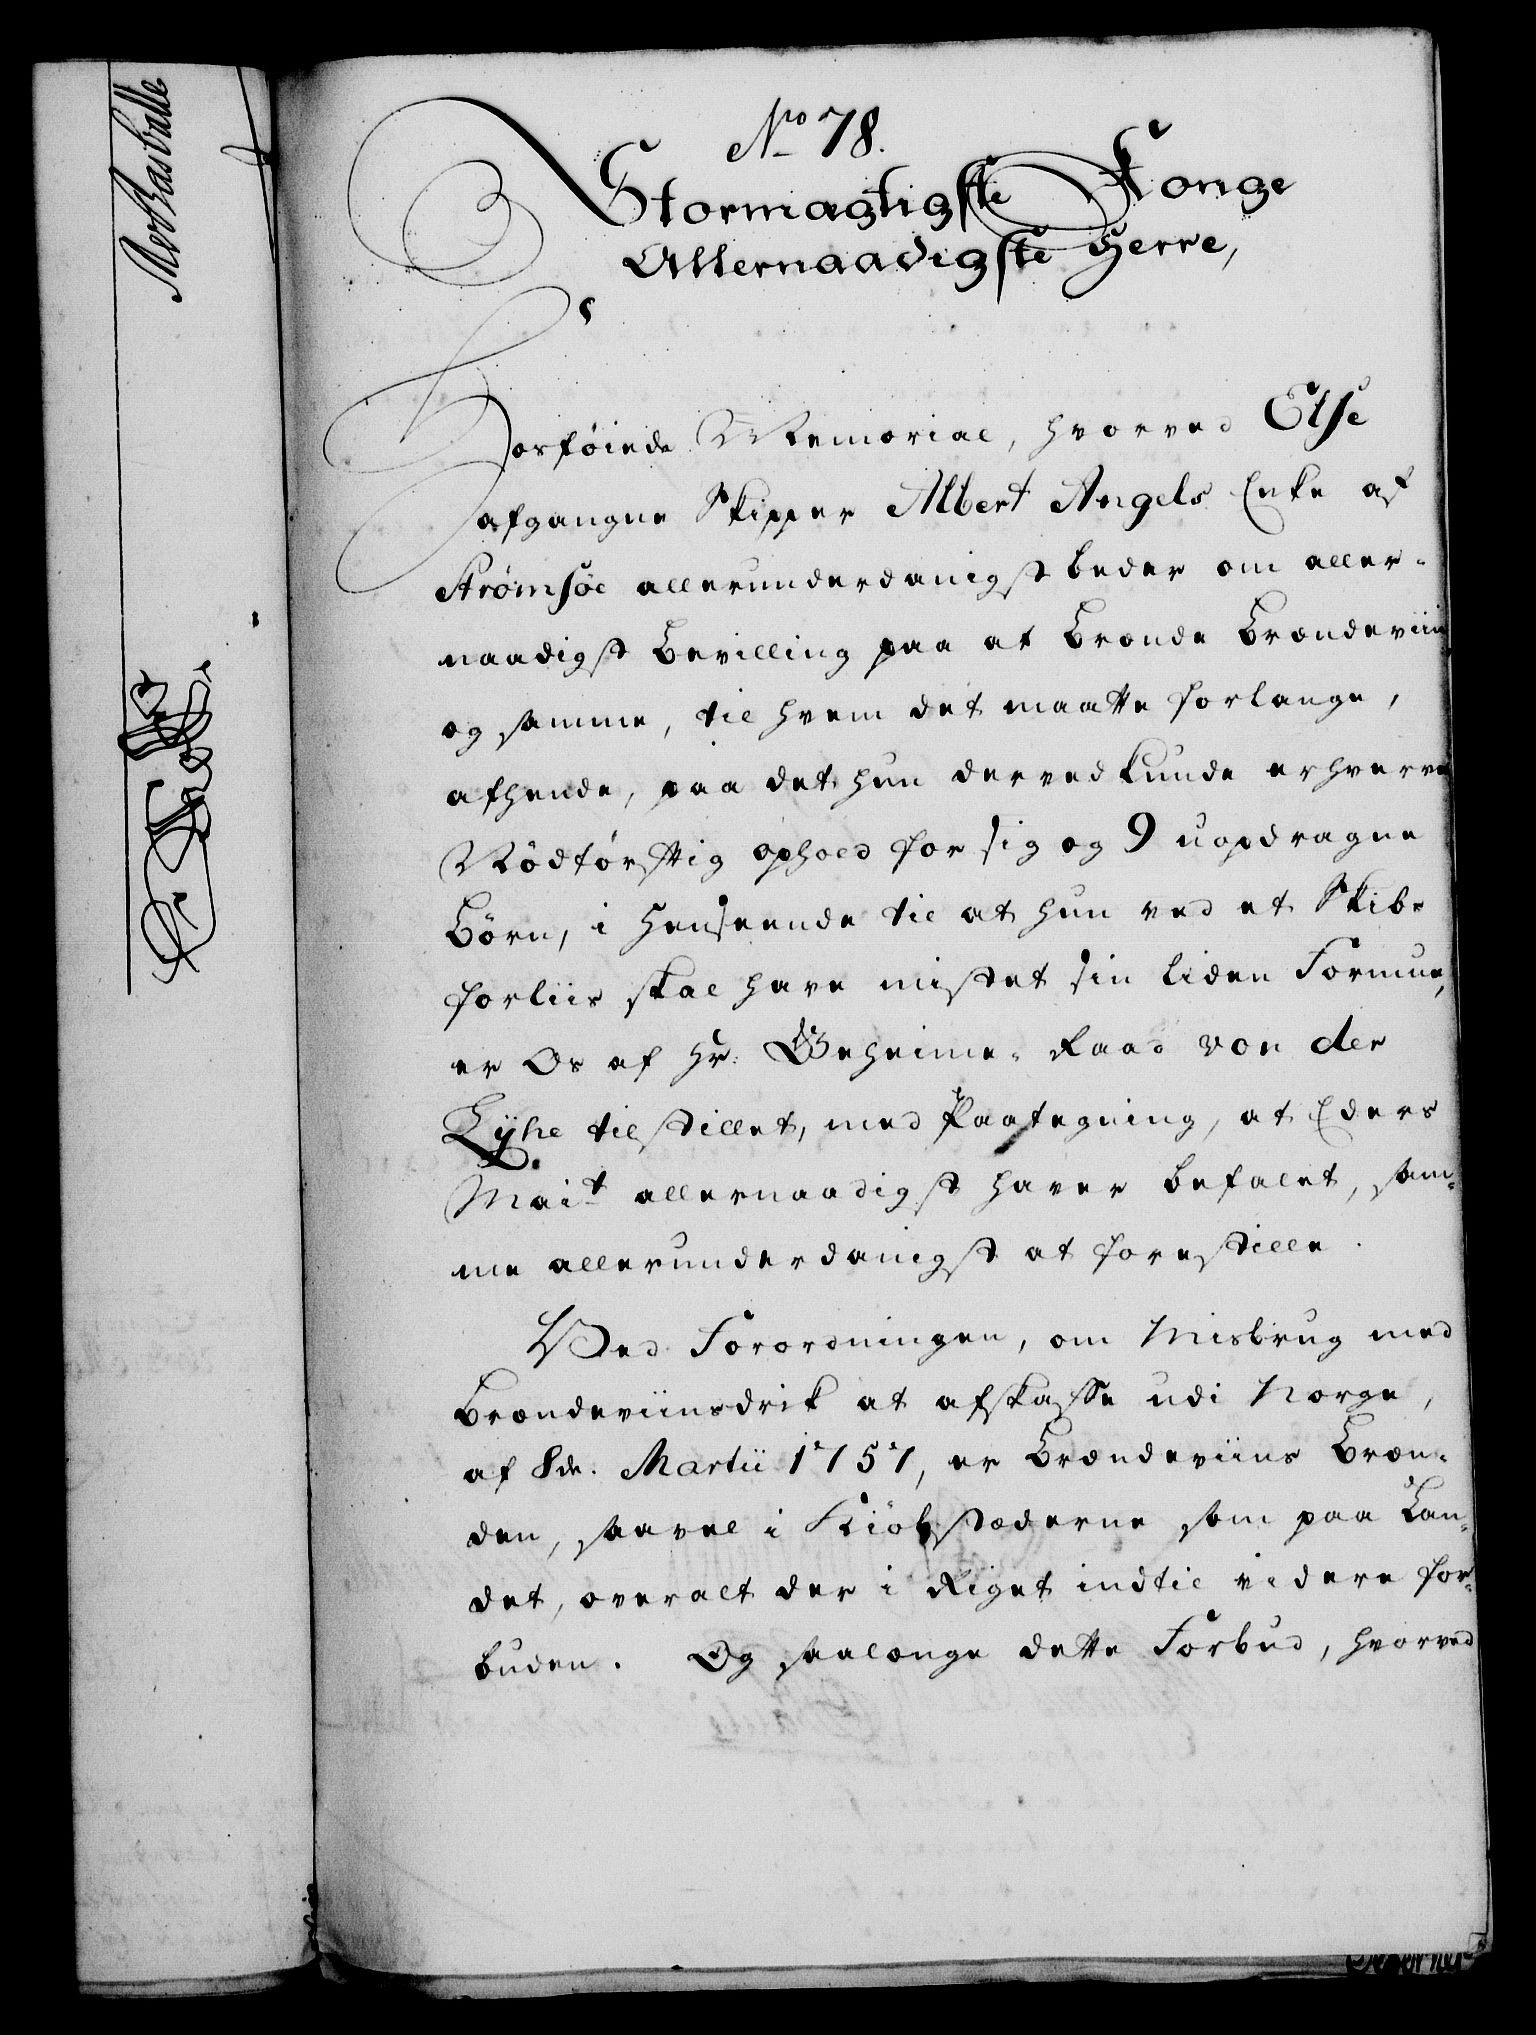 No 78.
Stormagtigste Konge
Allernaadigste Herre,
Hosføiede Memorial, hvorved Else
afgangne Skipper Albert Angels Enke af
Strømsöe allerunderdanigst beder om aller-
naadigst Bevilling paa at brænde Brændeviin
og samme, til hvem det maatte forlange,
afhænde, paa det hun derved kunde erhverve
Nödtörftig ophold for sig og 9 uopdragne
Börn, i Henseende til at hun ved et Skibs
forliis skal have mistet sin liden Formue,
er Os af Hr. Geheime-Raad von der
Lÿhe tilstillet, med Paategning, at Eders
Mait allernaadigst haver befalet, sam-
me allerunderdanigst at forestille.
Ved Forordningen, om Misbrug med
Brændeviinsdrik at afskaffe udi Norge,
af 8de. Martii 1757, er Brændeviins Bræn-
den, saavel i Kiöbstæderne som paa Lan-
det, overalt der i Riget indtil videre for-
buden. Og saalænge dette Forbud, hvorved